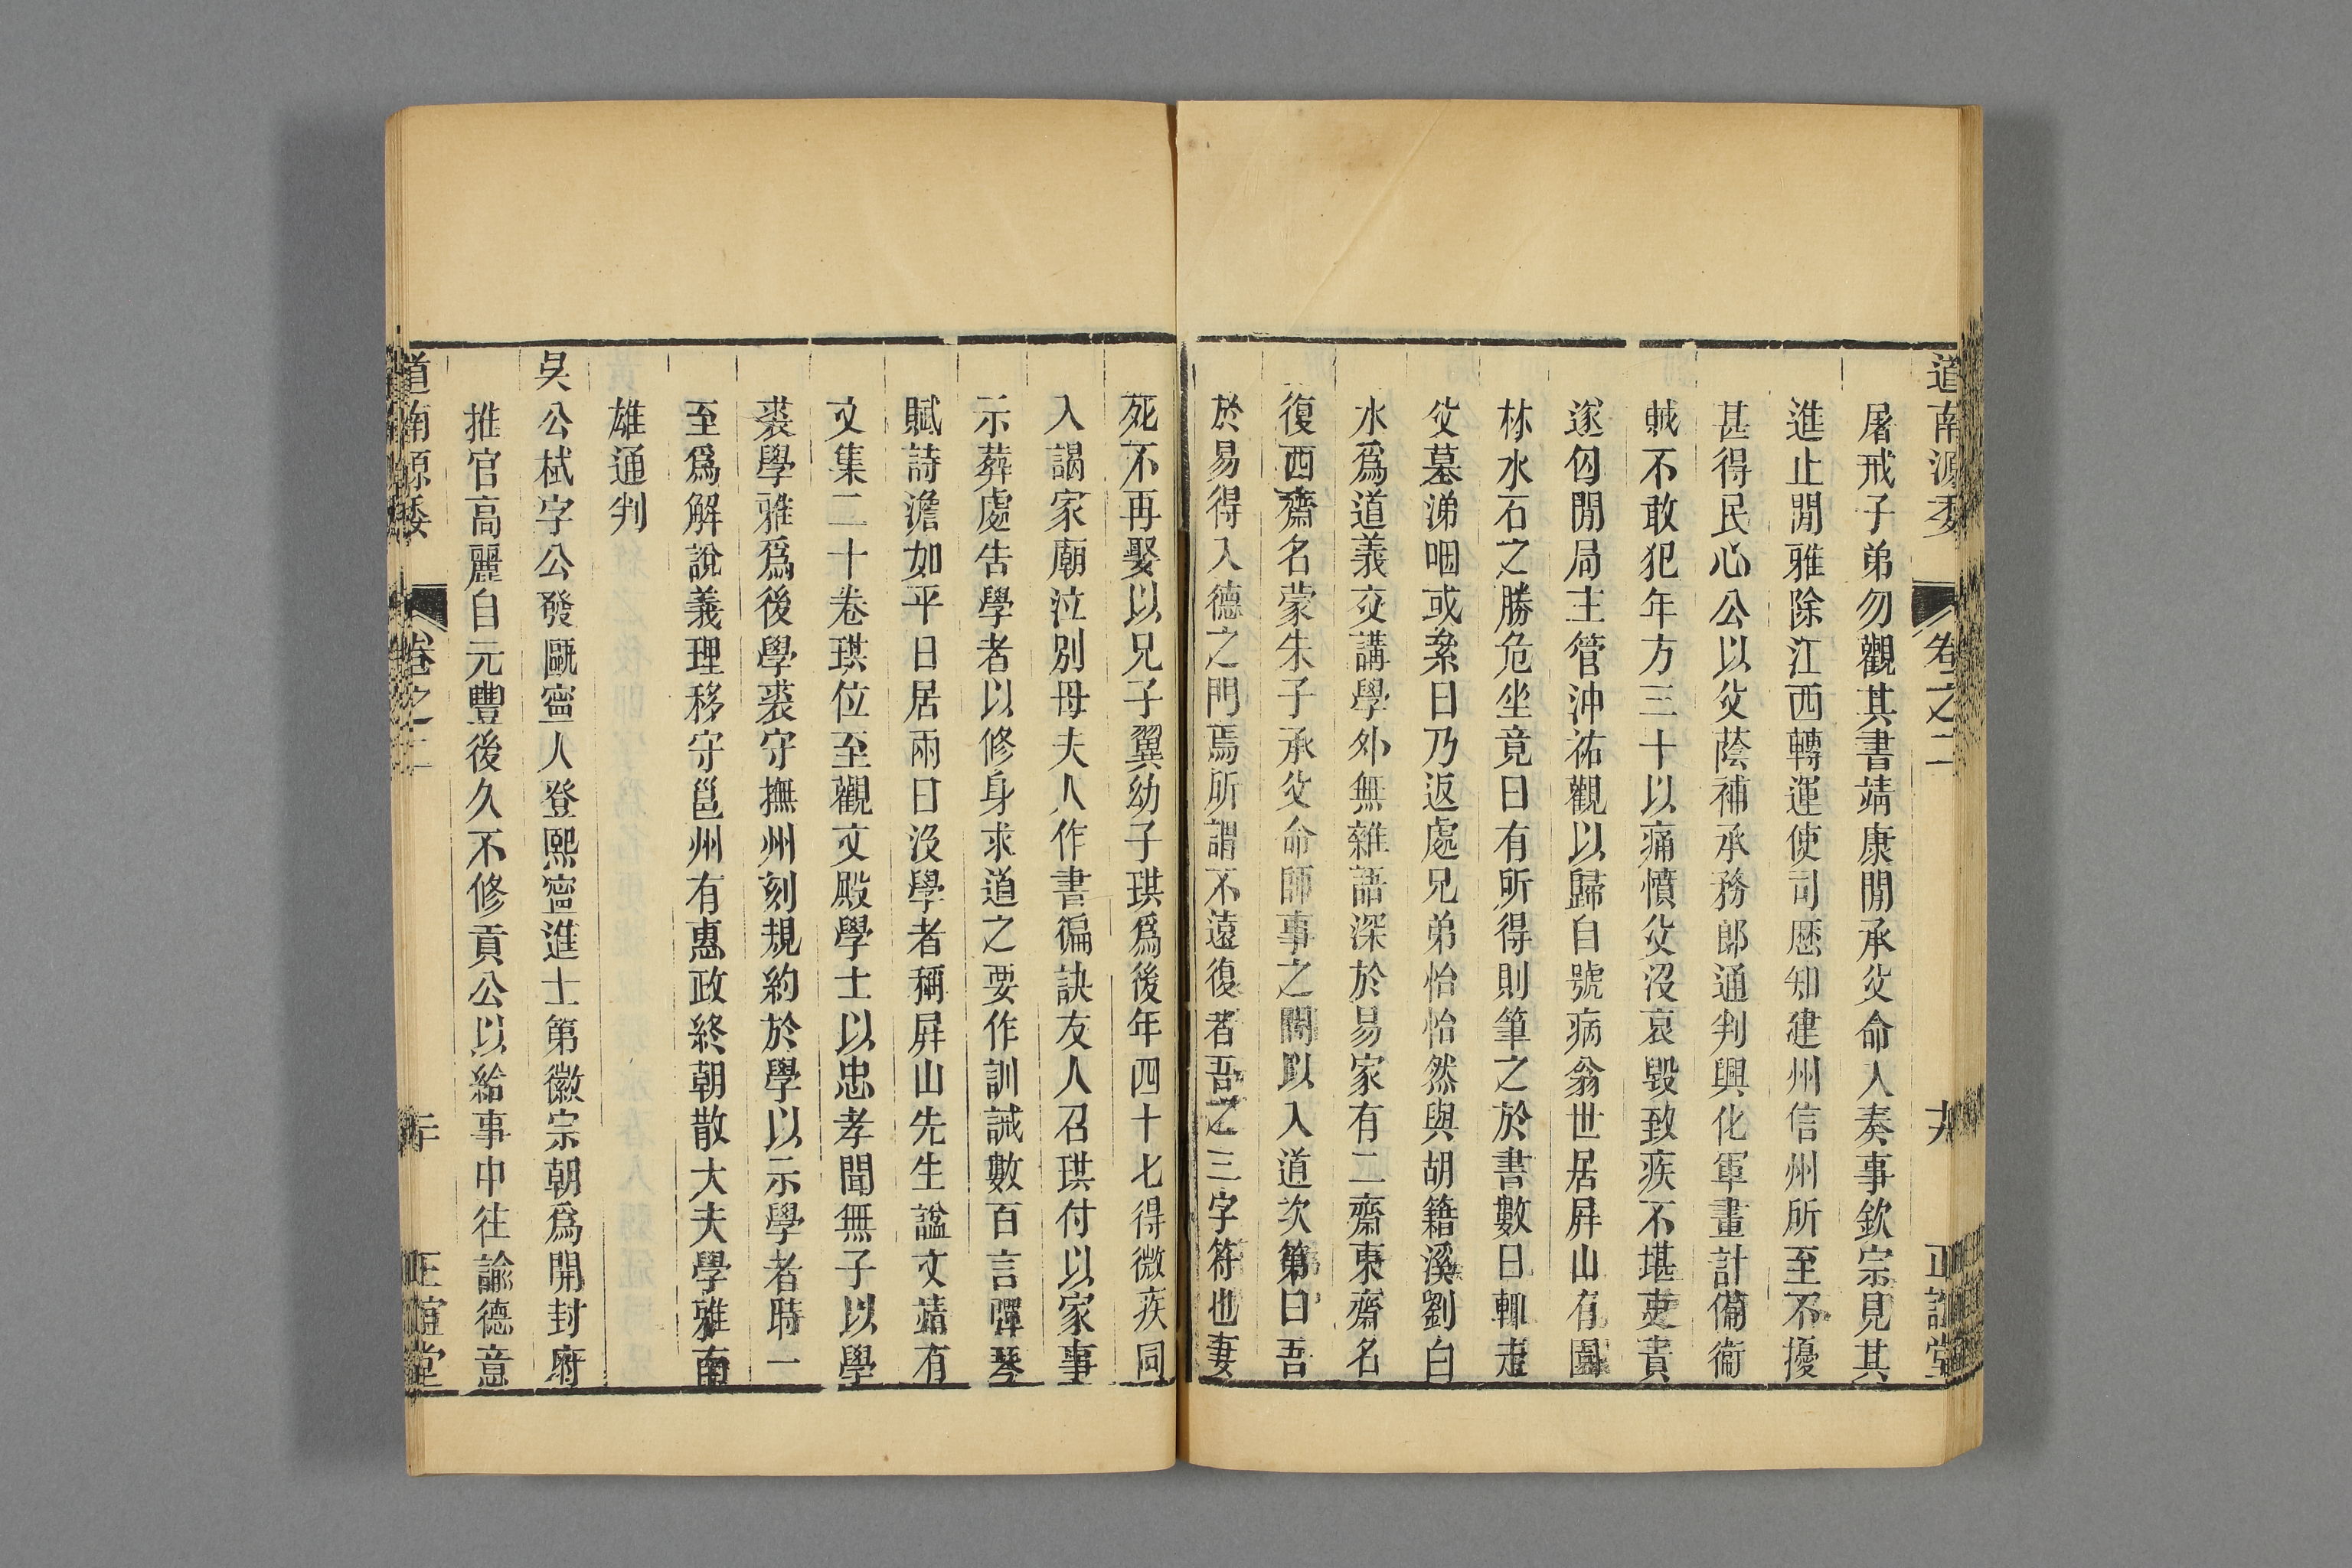 道南源委 卷之二 十九 正誼堂
屠戒子弟勿觀其書靖康閒承父命入奏事欽宗見其
進止閒雅除江西轉運使司歷知建州信州所至不擾
甚得民心公以父蔭補承務郎通判興化軍畫計備衞
賊不敢犯年方三十以痛憤父沒哀毀致疾不堪吏責
遂匃閒局主管沖祐觀以歸自號病翁世居屛山有園
林水石之勝危坐竟日有所得則筆之於書數日輒走
父墓涕咽或絫日乃返處兄弟怡怡然與胡籍溪劉白
水爲道義交講學外無雜語深於易家有二齋東齋名
復西齋名蒙朱子承父命師事之閒以入道次第曰吾
於易得入德之門焉所謂不遠復者吾之三字符也妻
死不再娶以兄子翼幼子珙爲後年四十七得微疾同
入謁家廟泣別母夫人作書徧訣友人召珙付以家事
示葬處告學者以修身求道之要作訓誡數百言彈琴
賦詩澹如平日居兩日沒學者稱屛山先生諡文靖有
文集二十卷珙位至觀文殿學士以忠孝聞無子以學
裘學雅爲後學裘守撫州刻規約於學以示學者時一
至爲解說義理移守邕州有惠政終朝散大夫學雅南
雄通判
吳公栻字公發甌寧人登熙寧進士第徽宗朝爲開封府
推官高麗自元豐後久不修貢公以給事中往諭德意
道南源委 卷之二 二十 正誼堂